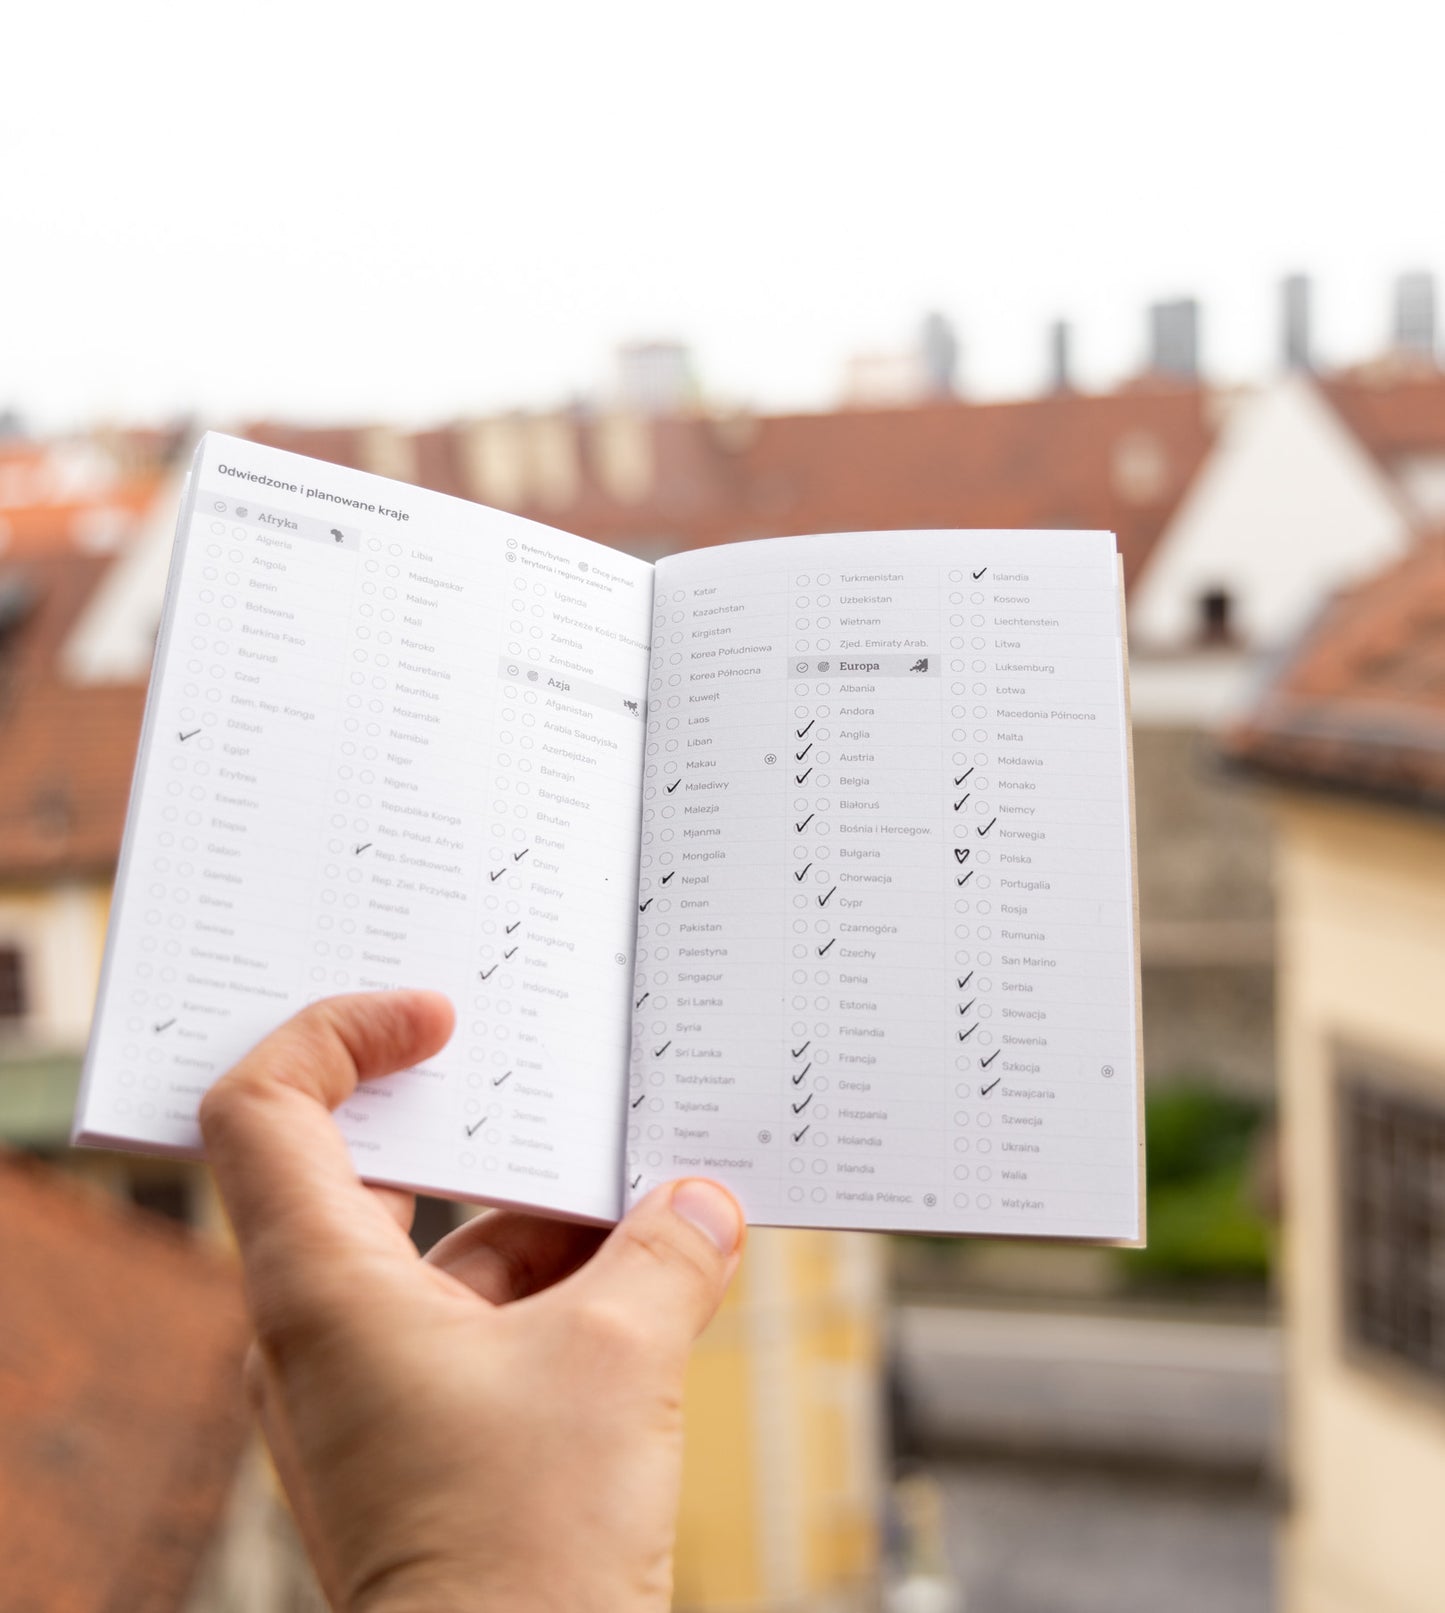 Odwiedzone i planowane kraje
Afryka
Algieria
Angola
Benin
Botswana
Burkina Faso
Burundi
Czad
Dem. Rep. Konga
Dżibuti
Egipt
Erytrea
Eswatini
Etiopia
Gabon
Gambia
Ghana
Gwinea
Gwinea Bissau
Gwinea Równikowa
Kamerun
Kenia
Komory
Libia
Madagaskar
Malawi
Mali
Maroko
Mauretania
Mauritius
Mozambik
Namibia
Niger
Nigeria
Republika Konga
Rep. Połud. Afryki
Rep. Środkowoafr.
Rep. Ziel. Przylądka
Rwanda
Senegal
Seszele
Togo
Byłem/byłam
Chcę jechać
Terytoria i regiony zależne
Uganda
Wybrzeże Kości Słoniowe
Zambia
Zimbabwe
Azja
Afganistan
Arabia Saudyjska
Azerbejdżan
Bahrajn
Bangladesz
Bhutan
Brunei
Chiny
Filipiny
Gruzja
Hongkong
Indie
Indonezja
Irak
Iran
Izrael
Japonia
Jemen
Jordania
Kambodża
Katar
Kazachstan
Kirgistan
Korea Południowa
Korea Północna
Kuwejt
Laos
Liban
Makau
Malediwy
Malezja
Mjanma
Mongolia
Nepal
Oman
Pakistan
Palestyna
Singapur
Sri Lanka
Syria
Sri Lanka
Tadżykistan
Tajlandia
Tajwan
Timor Wschodni
Turkmenistan
Uzbekistan
Wietnam
Zjed. Emiraty Arab.
Europa
Albania
Andora
Anglia
Austria
Belgia
Białoruś
Bośnia i Hercegow.
Bułgaria
Chorwacja
Cypr
Czarnogóra
Czechy
Dania
Estonia
Finlandia
Francja
Grecja
Hiszpania
Holandia
Irlandia
Irlandia Północ.
Islandia
Kosowo
Liechtenstein
Litwa
Luksemburg
Łotwa
Macedonia Północna
Malta
Mołdawia
Monako
Niemcy
Norwegia
Polska
Portugalia
Rosja
Rumunia
San Marino
Serbia
Słowacja
Słowenia
Szkocja
Szwajcaria
Szwecja
Ukraina
Walia
Watykan